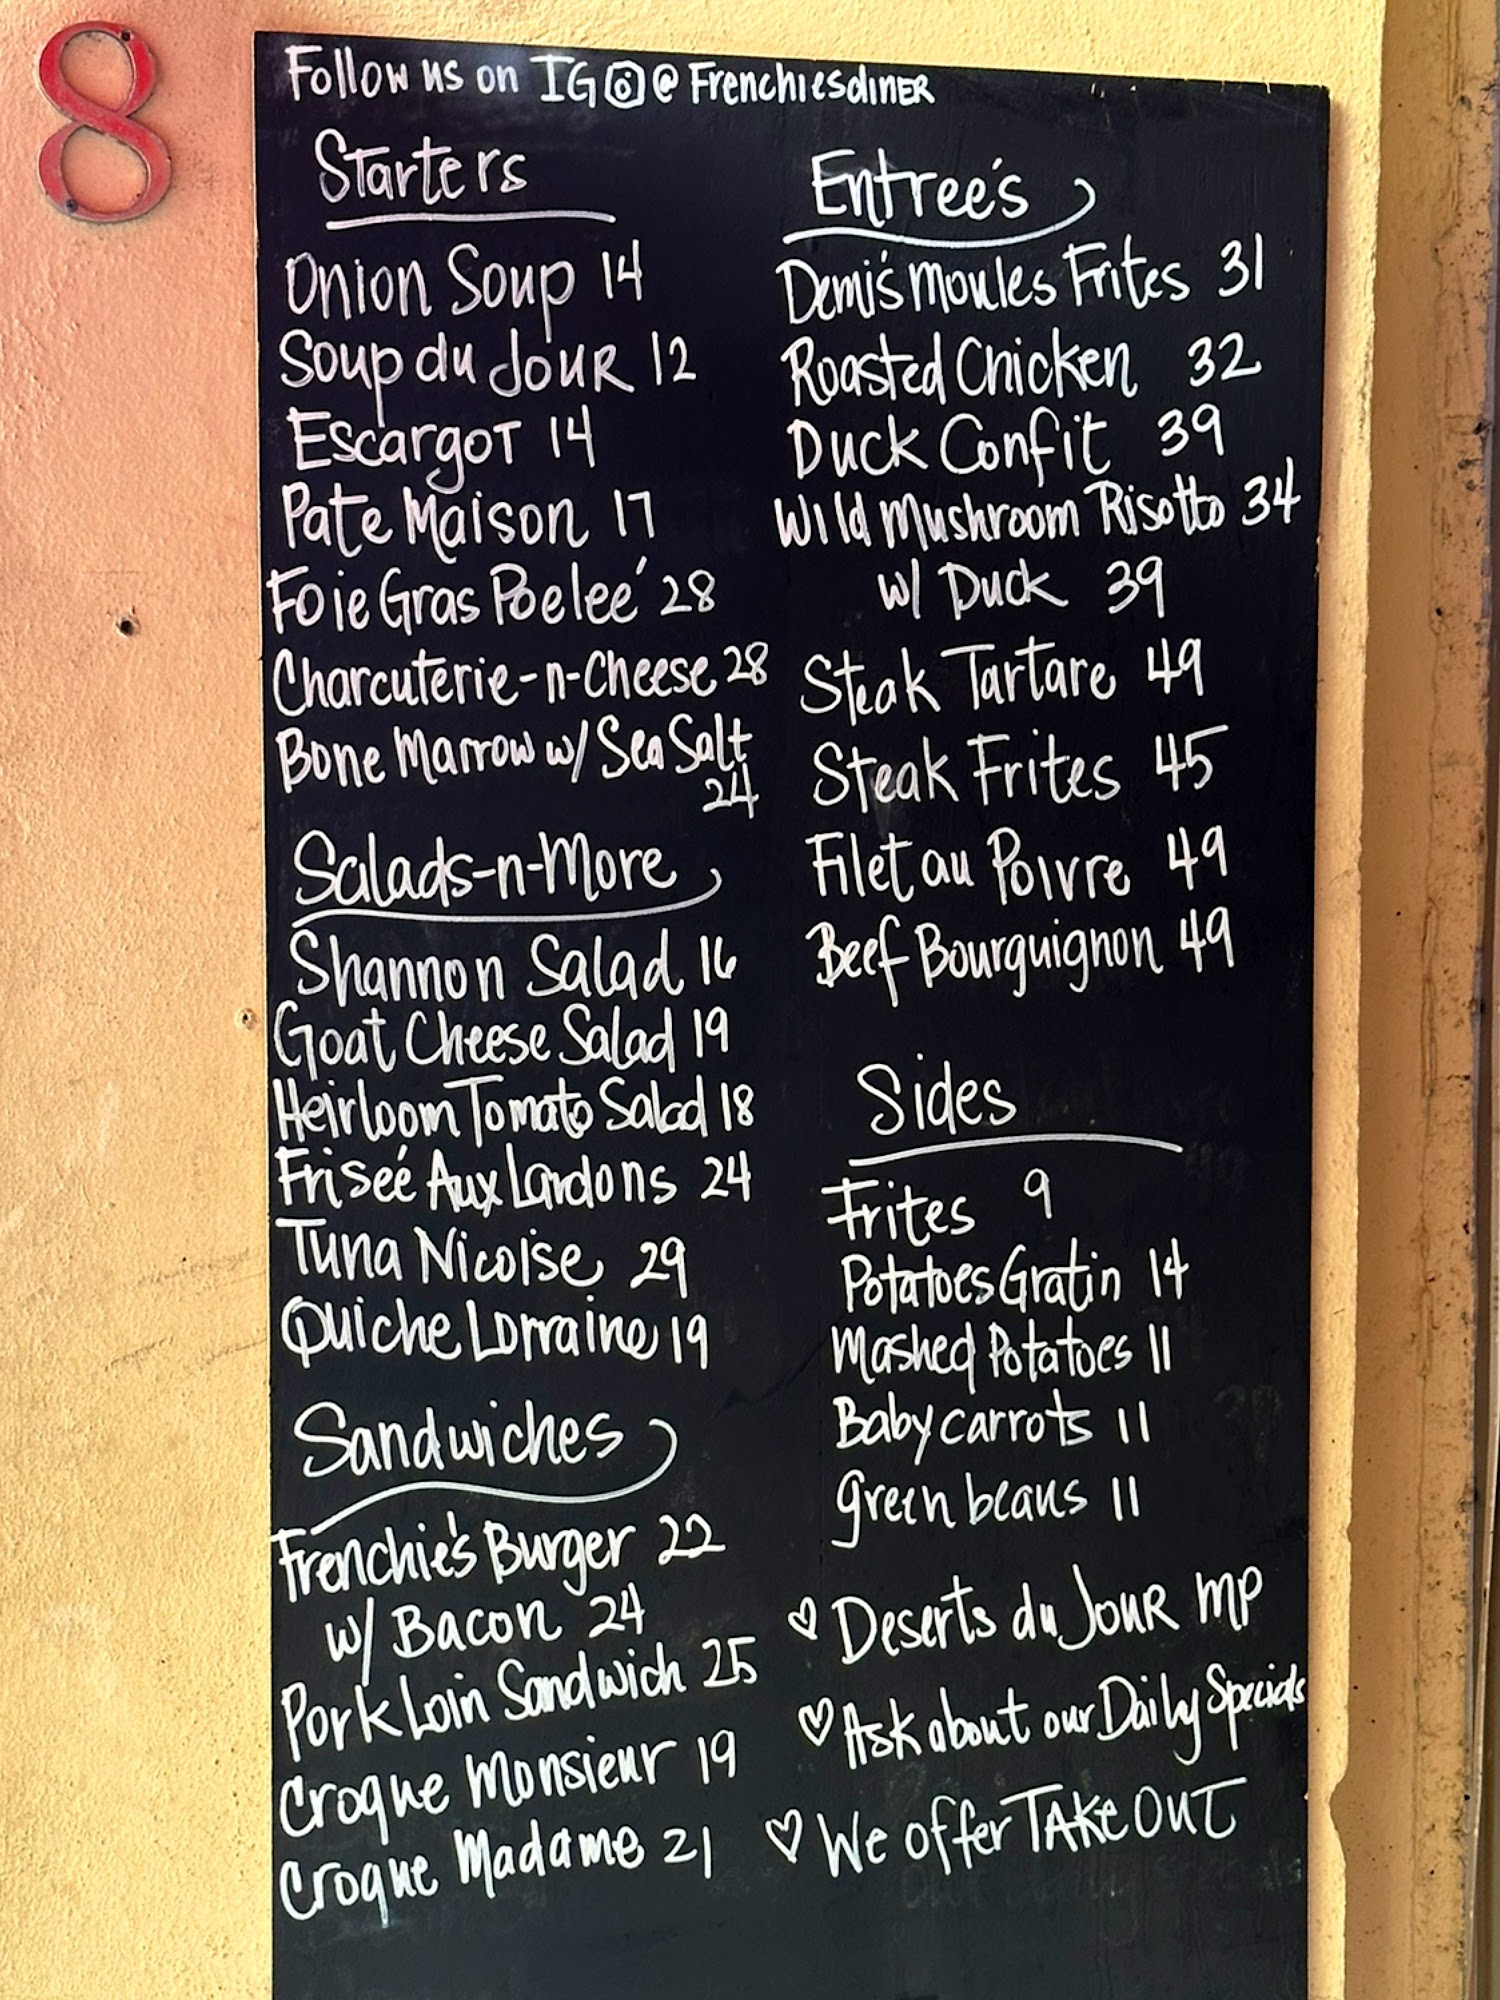 8
Follow us on IG @Frenchiesdiner
Starters
Onion Soup 14
Soup du Jour 12
Escargot 14
Pate Maison 17
Foie Gras Poeleé 28
Charcuterie-n-Cheese 28
Bone Marrow w/ Sea Salt
24
Salads-n-More
Shannon Salad 16
Goat Cheese Salad 19
Heirloom Tomato Salad 18
Friseé Aux Lardons 24
Tuna Nicoise 29
Quiche Lorraine 19
Sandwiches
Frenchie's Burger 22
w/ Bacon 24
Pork Loin Sandwich 25
Croque Monsieur 19
Croque Madame 21
Entree's
Demi's Moules Frites 31
Roasted Chicken 32
Duck Confit 39
Wild Mushroom Risotto 34
w/ Duck 39
Steak Tartare 49
Steak Frites 45
Filet au Poivre 49
Beef Bourguignon 49
Sides
Frites 9
Potatoes Gratin 14
Mashed Potatoes 11
Baby carrots 11
green beans 11
♡ Deserts du Jour MP
♡ Ask about our Daily Specials
♡ We offer TAKE OUT